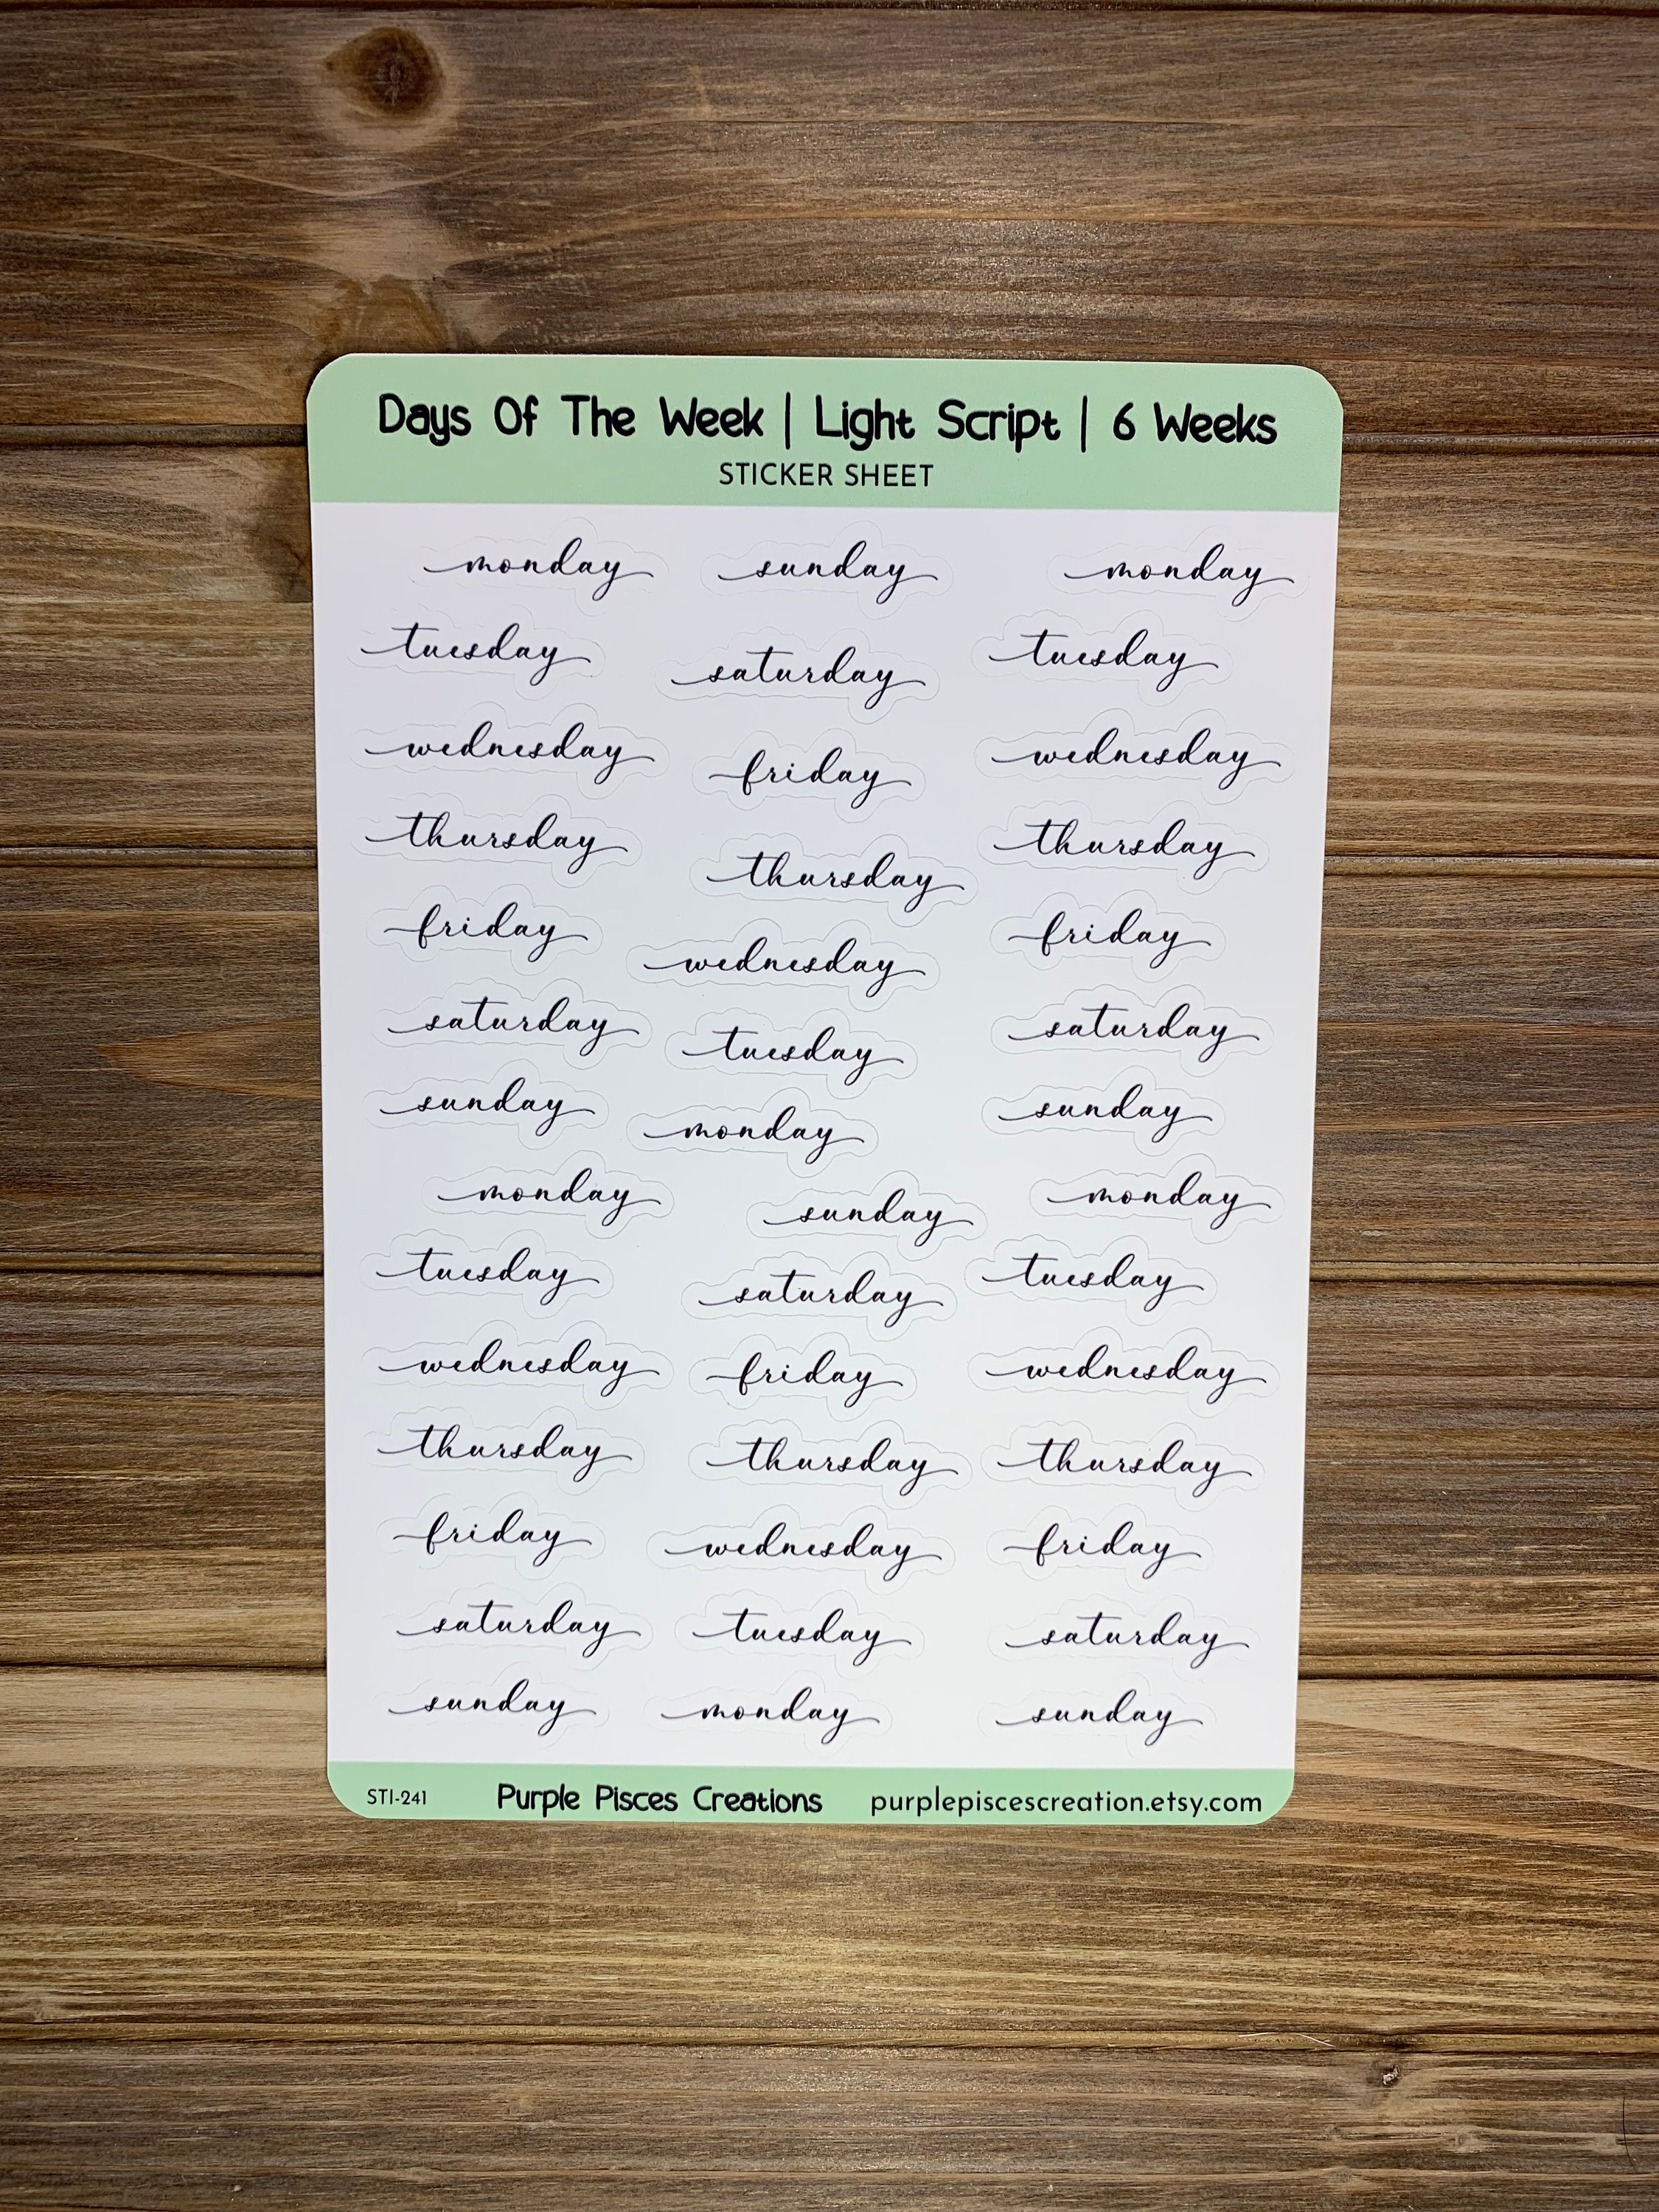 Days Of The Week | Light Script | 6 Weeks
STICKER SHEET
monday sunday monday
tuesday saturday tuesday
wednesday friday wednesday
thursday thursday thursday
friday wednesday friday
saturday tuesday saturday
sunday monday sunday
monday sunday monday
tuesday saturday tuesday
wednesday friday wednesday
thursday thursday thursday
friday wednesday friday
saturday tuesday saturday
sunday monday sunday
STI-241 Purple Pisces Creations purplepiscescreation.etsy.com